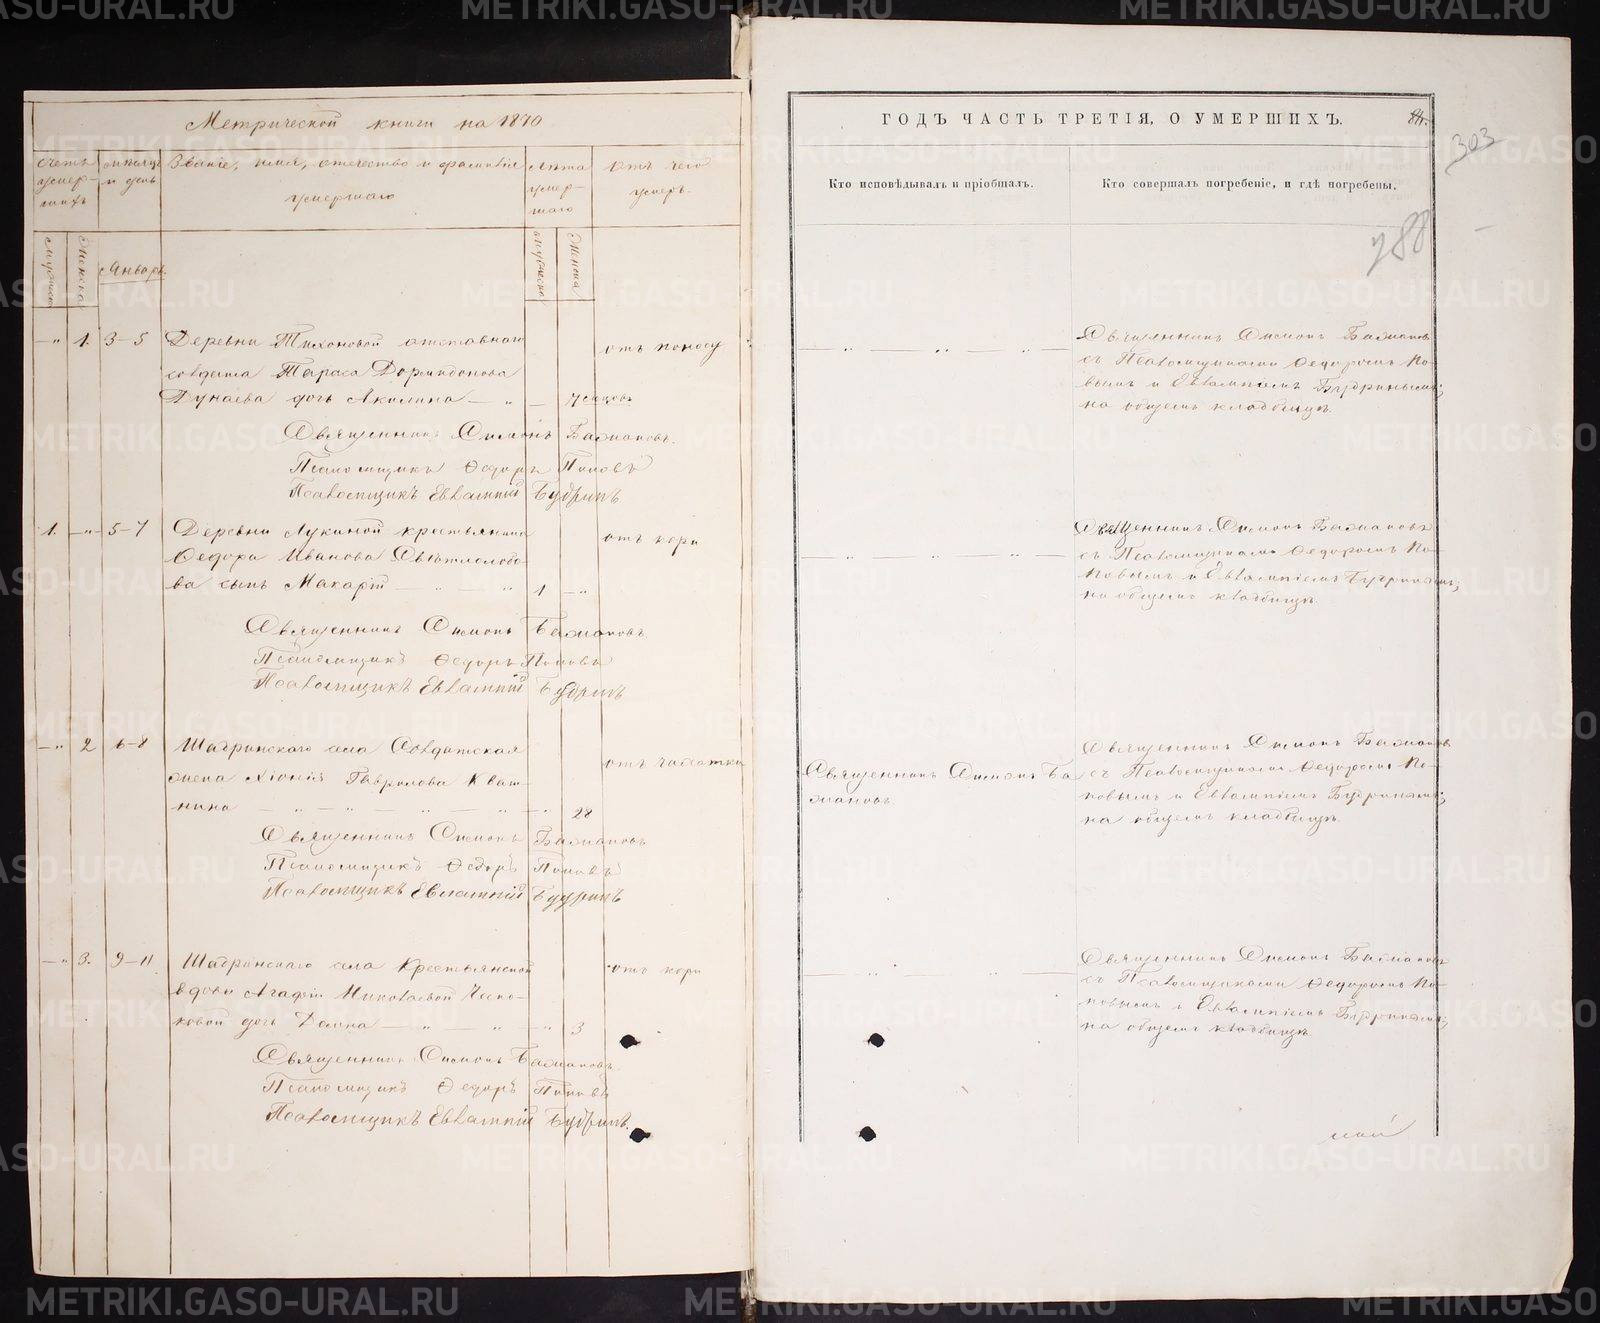 Метрической книги на 1870
Счетъ умер-шихъ
Мѣсяцъ и день
Званіе, имя, отчество и фамилія умершаго
Лѣта умер-шаго
Отъ чего умеръ.
Мужеска
Женска
Январь.
Мужеска
Женска
-"- 1. 3-5 Деревни Тихоновой отставнаго
солдата Тараса Дормидонова
Дунаева дочь Акилина
отъ поносу
Священникъ Симонъ Бажановъ.
Псаломщикъ Ѳедоръ Поповъ
Псаломщикъ Евлампій Будринъ
1. -"- 5-7 Деревни Лукиной крестьянина
Ѳедора Иванова Свѣтлолобо-
ва сынъ Макарій 1 -"-
отъ кори
Священникъ Симонъ Бажановъ
Псаломщикъ Ѳедоръ Поповъ
Псаломщикъ Евлампій Будринъ
-"- 2 6-8 Шадринскаго села Солдатская
жена Хіонія Гаврилова Кваш-
нина 28
отъ чахотки
Священникъ Симонъ Бажановъ
Псаломщикъ Ѳедоръ Поповъ
Псаломщикъ Евлампій Будринъ
-"- 3. 9-11 Шадринскаго села Крестьянской
вдовы Агафіи Николаевой
ковой дочь Домна -"- 3
отъ кори
Священникъ Симонъ Бажановъ.
Псаломщикъ Ѳедоръ Поповъ
Псаломщикъ Евлампій Будринъ.
ГОДЪ ЧАСТЬ ТРЕТІЯ, О УМЕРШИХЪ.
303
Кто исповѣдывалъ и пріобщалъ.
Кто совершалъ погребеніе, и гдѣ погребены.
788
Священникъ Симонъ Бажановъ
съ Псаломщиками Ѳедоромъ По-
вымъ и Евлампіемъ Будринымъ;
на общемъ кладбищѣ.
Священникъ Симонъ Бажановъ
съ Псаломщиками Ѳедоромъ По-
повымъ и Евлампіемъ Будринымъ;
на общемъ кладбищѣ
Священникъ Симонъ Ба-
жановъ.
Священникъ Симонъ Бажановъ
съ Псаломщиками Ѳедоромъ По-
повымъ и Евлампіемъ Будринымъ;
на общемъ кладбищѣ.
Священникъ Симонъ Бажановъ
съ Псаломщиками Ѳедоромъ По-
повымъ и Евлампіемъ Будринымъ;
на общемъ кладбищѣ.
METRIKI.GASO-URAL.RU